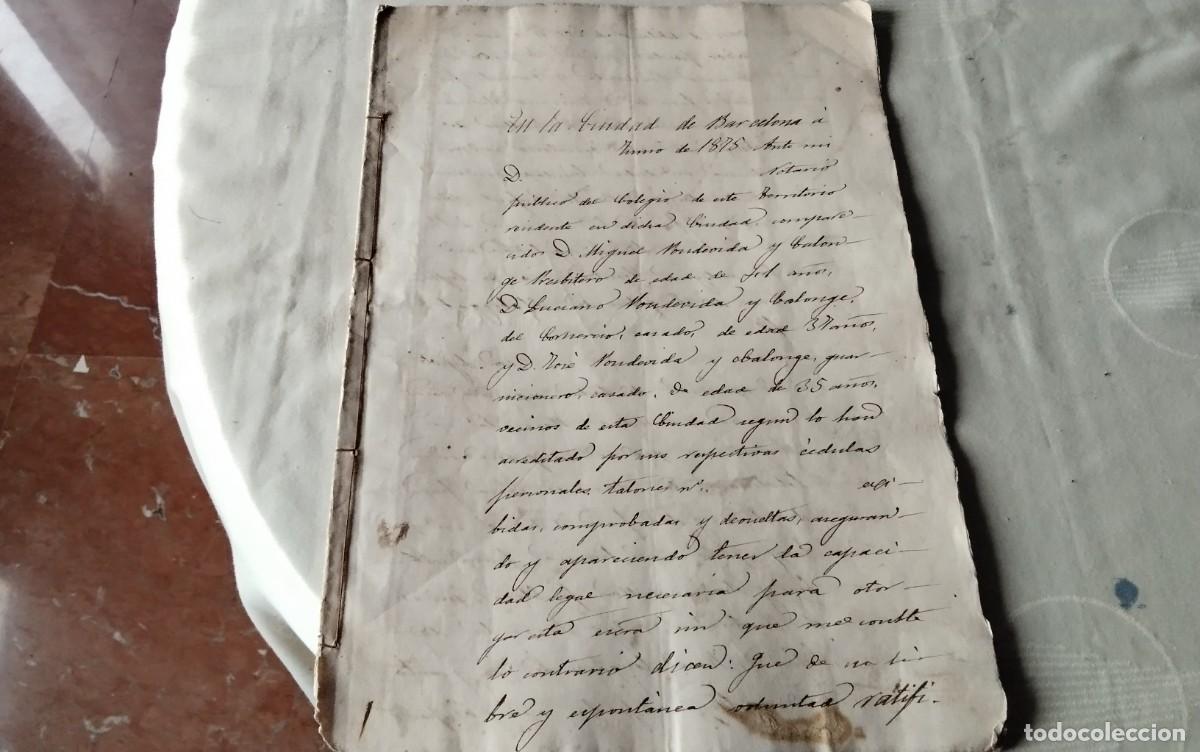 En la Ciudad de Barcelona à
Junio de 1875 Ante mi
D. Notario
público del Colegio de este Territorio
residente en dicha Ciudad, compare-
cidos D. Miguel Vondevida y Calon
ge Presbitero de edad de años,
D. Luciano Vondevida y Calonge,
del Comercio, casado, de edad 37 años,
y D. José Vondevida y Calonge, guar-
nicionero, casado, de edad de 35 años,
vecinos de esta Ciudad segun lo han
acreditado por sus respectivas cédulas
personales, talones nº. exi-
bidas, comprobadas y devueltas, aseguran-
do y apareciendo tener la capaci-
dad legal necesaria para otor-
gar esta escra sin que me conste
lo contrario dicen: Que de su li-
bre y espontánea voluntad ratifi-
todocoleccion